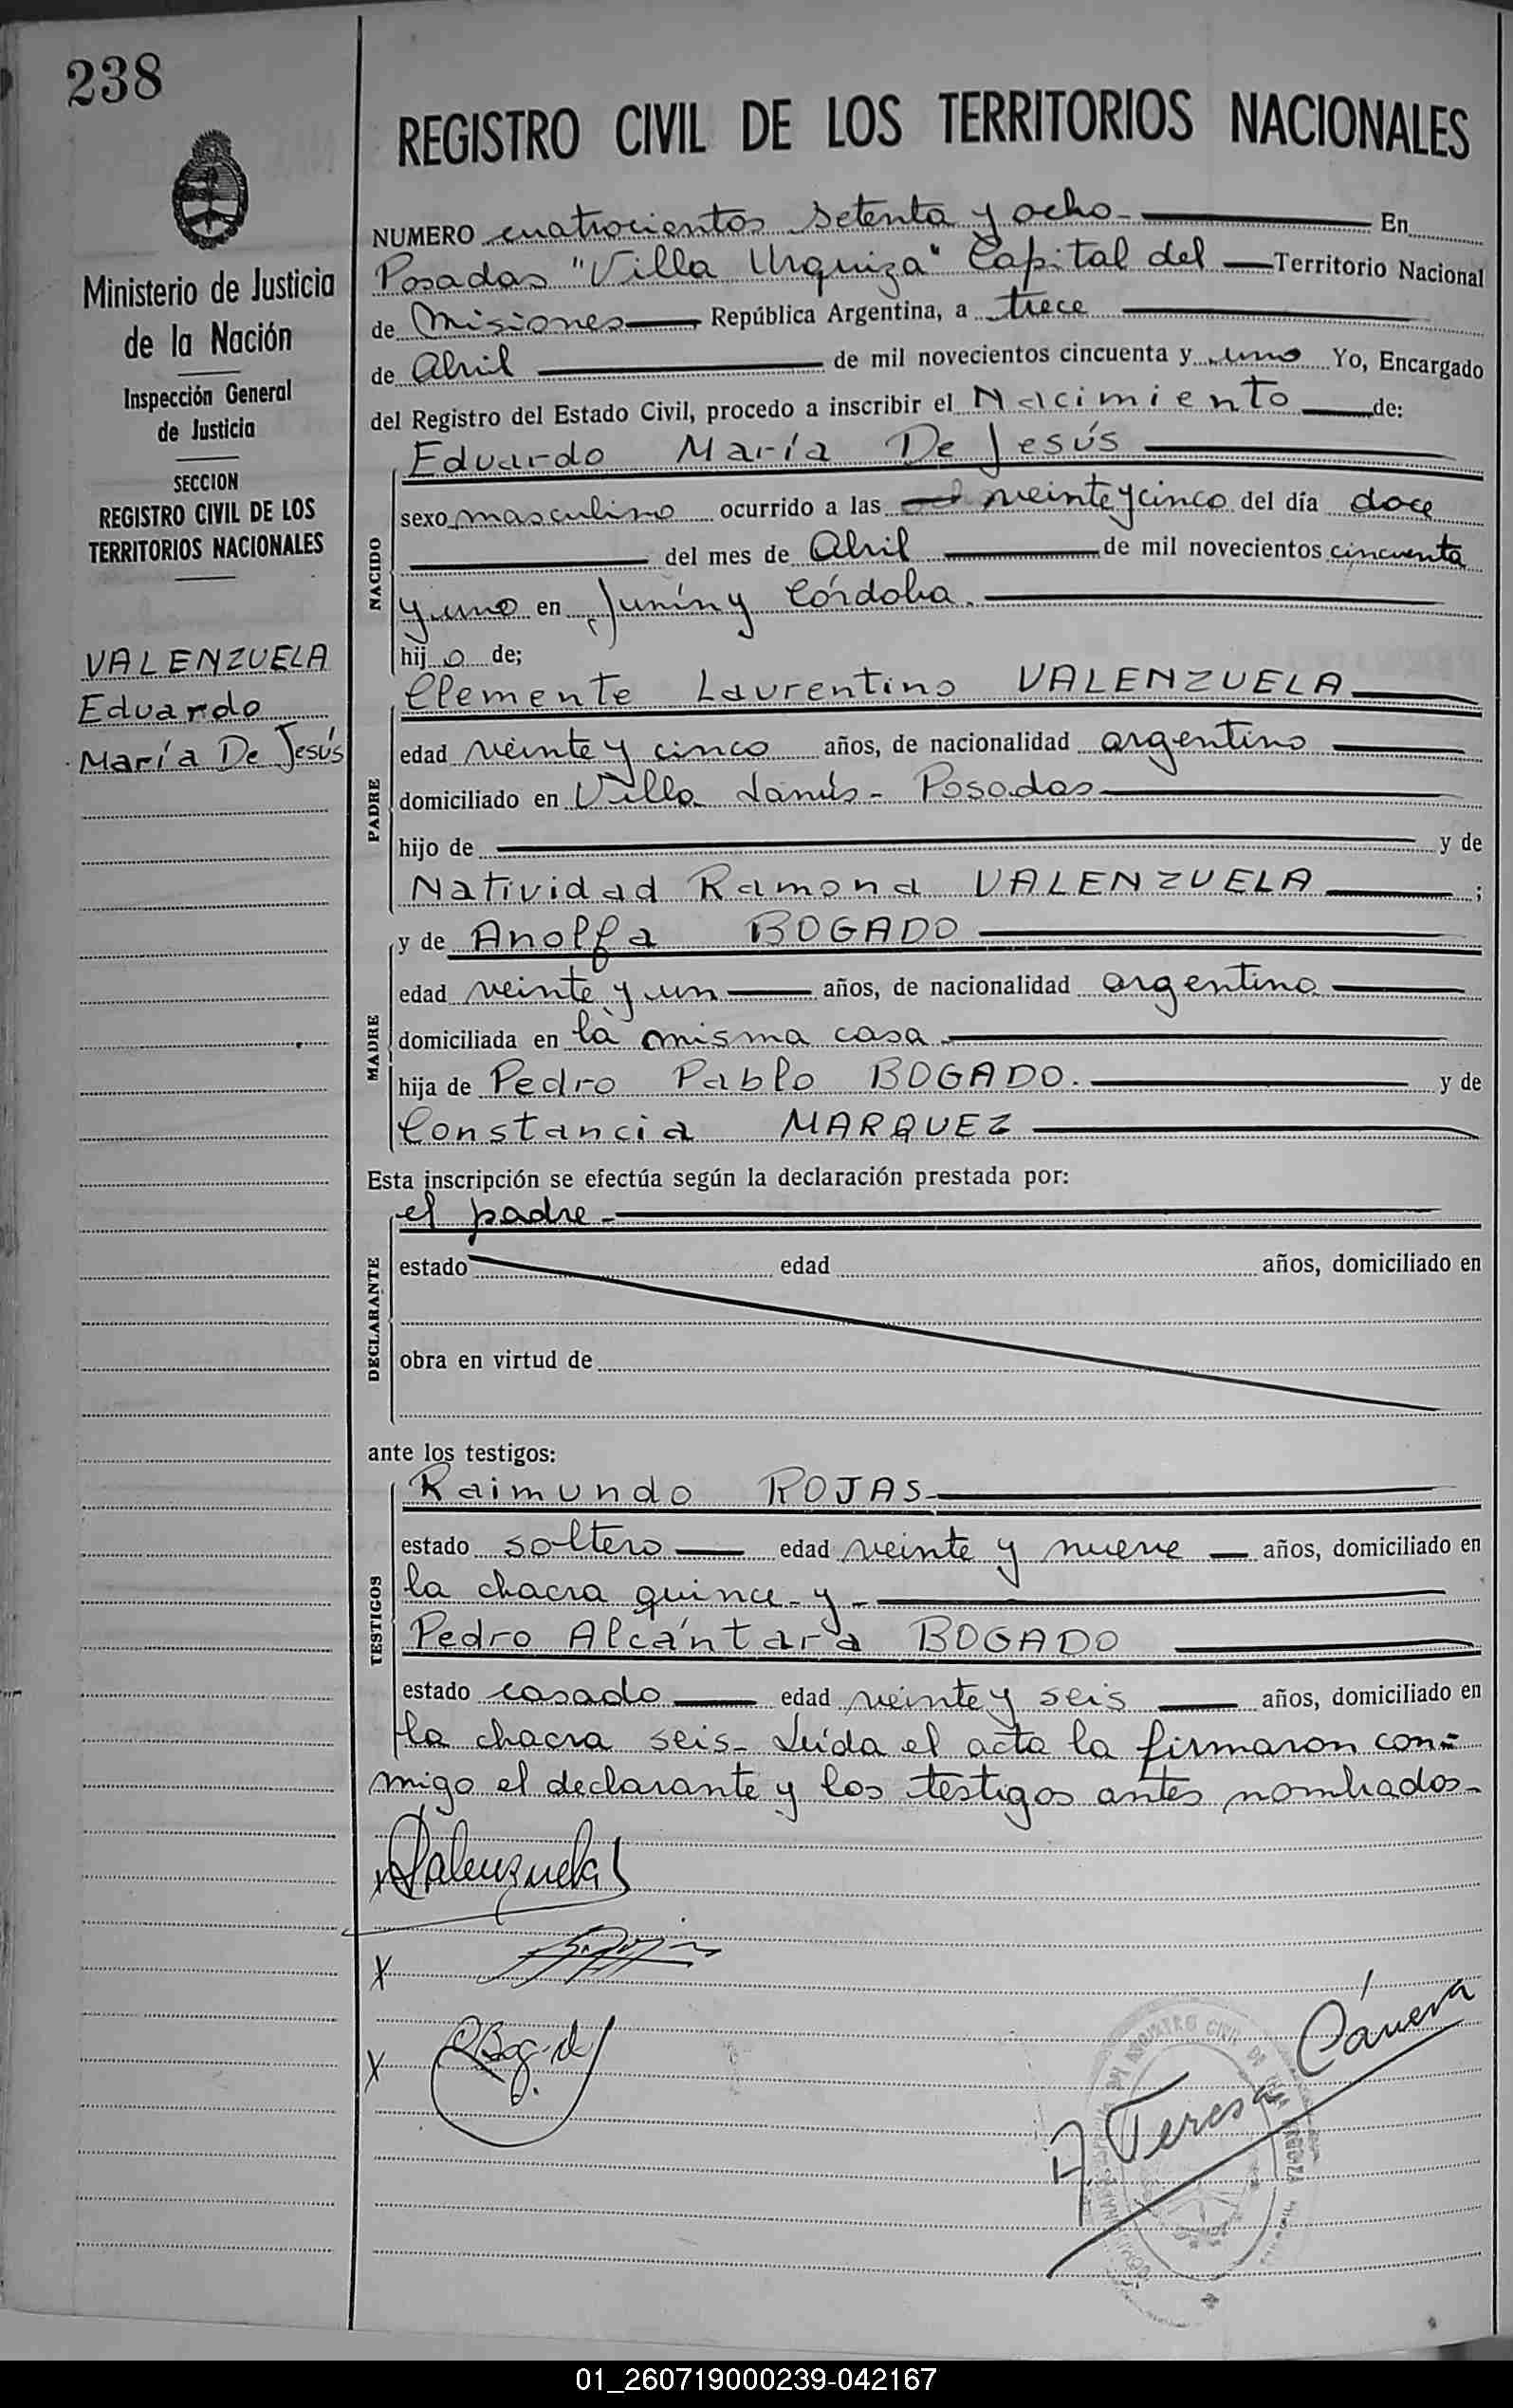 238
REGISTRO CIVIL DE LOS TERRITORIOS NACIONALES
Ministerio de Justicia
de la Nación
Inspección General
de Justicia
SECCION
REGISTRO CIVIL DE LOS
TERRITORIOS NACIONALES
VALENZUELA
Eduardo
María De Jesús
NUMERO cuatrocientos setenta y ocho - En
Posadas "Villa Urquiza" Capital del Territorio Nacional
de Misiones República Argentina, a trece
de Abril de mil novecientos cincuenta y uno Yo, Encargado
del Registro del Estado Civil, procedo a inscribir el Nacimiento de:
NACIDO
Eduardo María De Jesús
sexo masculino ocurrido a las veinte y cinco del día doce
del mes de Abril de mil novecientos cincuenta
y uno en Junín y Córdoba.
hijo de;
PADRE
Clemente Laurentino VALENZUELA
edad veinte y cinco años, de nacionalidad argentino
domiciliado en Villa Lanús - Posadas
hijo de y de
Natividad Ramona VALENZUELA ;
MADRE
y de Anolfa BOGADO
edad veinte y un años, de nacionalidad argentina
domiciliada en la misma casa
hija de Pedro Pablo BOGADO. y de
Constancia MARQUEZ
Esta inscripción se efectúa según la declaración prestada por:
DECLARANTE
el padre
estado edad años, domiciliado en
obra en virtud de
ante los testigos:
TESTIGOS
Raimundo ROJAS
estado soltero edad veinte y nueve años, domiciliado en
la chacra quince y
Pedro Alcántara BOGADO
estado casado edad veinte y seis años, domiciliado en
la chacra seis - Leída el acta la firmaron con=
migo el declarante y los testigos antes nombrados -
x Valenzuela
x
x Bogado
A. Teresa Cánera
01_260719000239-042167